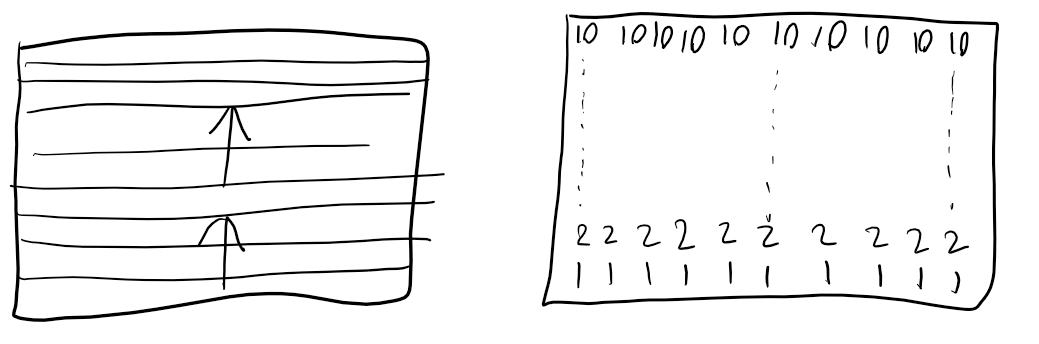 10 10 10 10 10 10 10 10 10 10
2 2 2 2 2 2 2 2 2 2
1 1 1 1 1 1 1 1 1 1